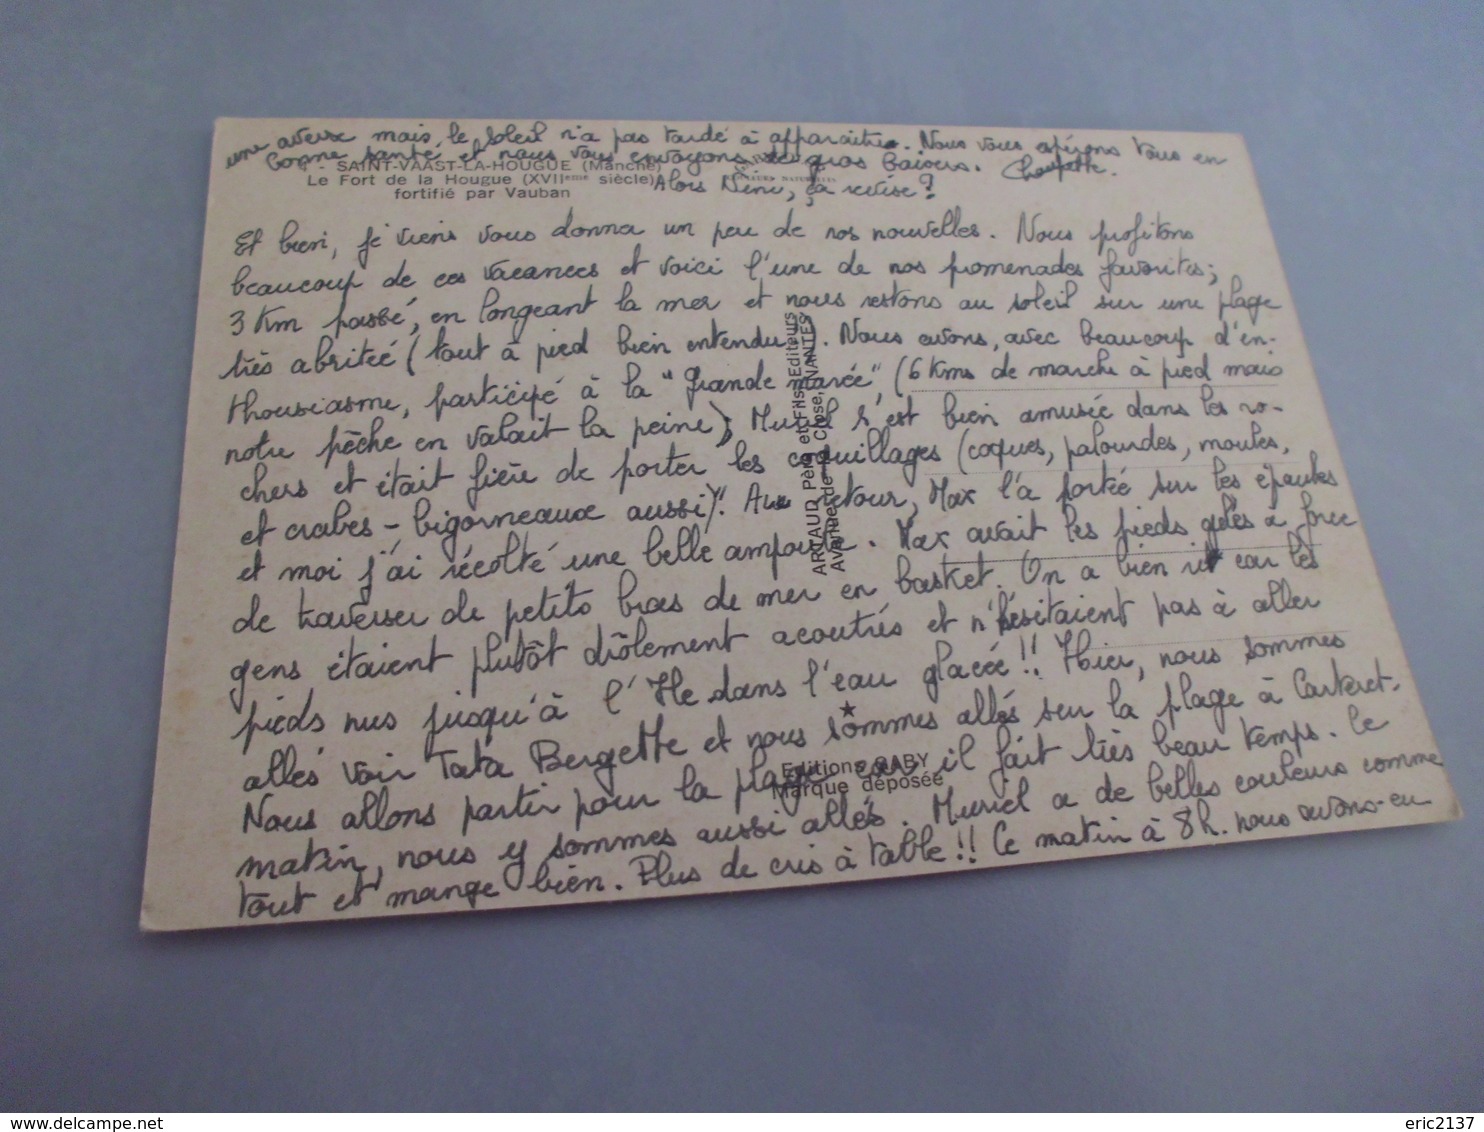 une averse mais le soleil n'a pas tardé à apparaître. Nous vous espérons tous en
bonne santé et nous vous envoyons de gros baisers.
SAINT-VAAST-LA-HOUGUE (Manche)
Le Fort de la Hougue (XVIIeme siècle)
fortifié par Vauban
Alors Nini, ça révise ?
Et bien, je viens vous donner un peu de nos nouvelles. Nous profitons
beaucoup de ces vacances et voici l'une de nos promenades favorites ;
3 Km passé, en longeant la mer et nous restons au soleil sur une plage
très abritée (tout à pied bien entendu). Nous avons, avec beaucoup d'en-
thousiasme, participé à la "Grande marée" (6 Kms de marche à pied mais
notre pêche en valait la peine) Muriel s'est bien amusée dans les ro-
chers et était fière de porter les coquillages (coques, palourdes, moules,
et crabes - bigorneaux aussi)! Au retour, Max l'a portée sur les épaules
et moi j'ai récolté une belle ampoule. Max avait les pieds gelés à force
de traverser de petits bras de mer en basket. On a bien rit car les
gens étaient plutôt drôlement acoutrés et n'hésitaient pas à aller
pieds nus jusqu'à l'Ile dans l'eau glacée !! Hier, nous sommes
allés voir Tata Bergette et nous sommes allés sur la plage à Carteret.
Nous allons partir pour la plage car il fait très beau temps. Le
matin, nous y sommes aussi allés. Muriel a de belles couleurs comme
tout et mange bien. Plus de cris à table !! Ce matin à 8h. nous avons eu
ARTAUD Père et Fils Editeurs
Avenue de la Close, NANTES
Editions GABY
Marque déposée
www.delcampe.net
eric2137